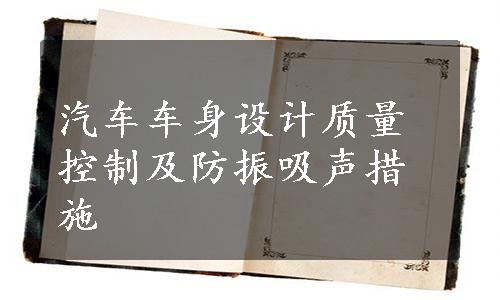 汽车车身设计质量
控制及防振吸声措
施